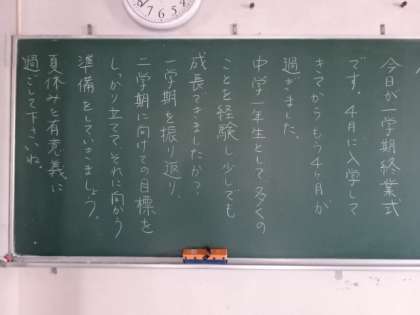 今日が一学期終業式
です。4月に入学して
きてからもう4ヶ月が
過ぎました。
中学一年生として多くの
ことを経験し少しでも
成長できましたか?
一学期を振り返り、
二学期に向けての目標を
しっかり立てて、それに向かう
準備をしていきましょう。
夏休みを有意義に
過ごして下さいね。